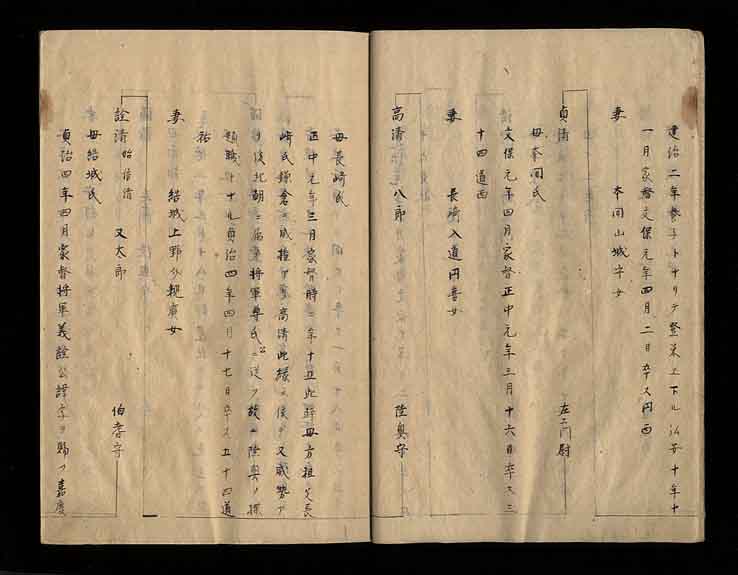 建治二年養子トナリテ登米エ下ル弘安十年十
一月家督文保元年四月二日卒ス円西
妻 本間山城守女
貞清 左エ門尉
母本間氏
文保元年四月家督正中元年三月十六日卒ス三
十四道西
妻 長崎入道円喜女
高清 八郎 陸奥守
母長崎氏
正中元年三月家督時ニ年十五此時母方祖父長
崎氏鎌倉ニ威権
高清此縁ニ依テ又威勢アリ
後北朝ニ属シ将軍尊氏公ニ従フ故ニ陸奥ノ探
題職ナル貞治四年四月十七日卒ス五十四道
祐
妻 結城上野介親廣女
詮清 始信清 又太郎 伯耆守
母結城氏
貞治四年四月家督将軍義詮公諱字ヲ賜フ嘉慶